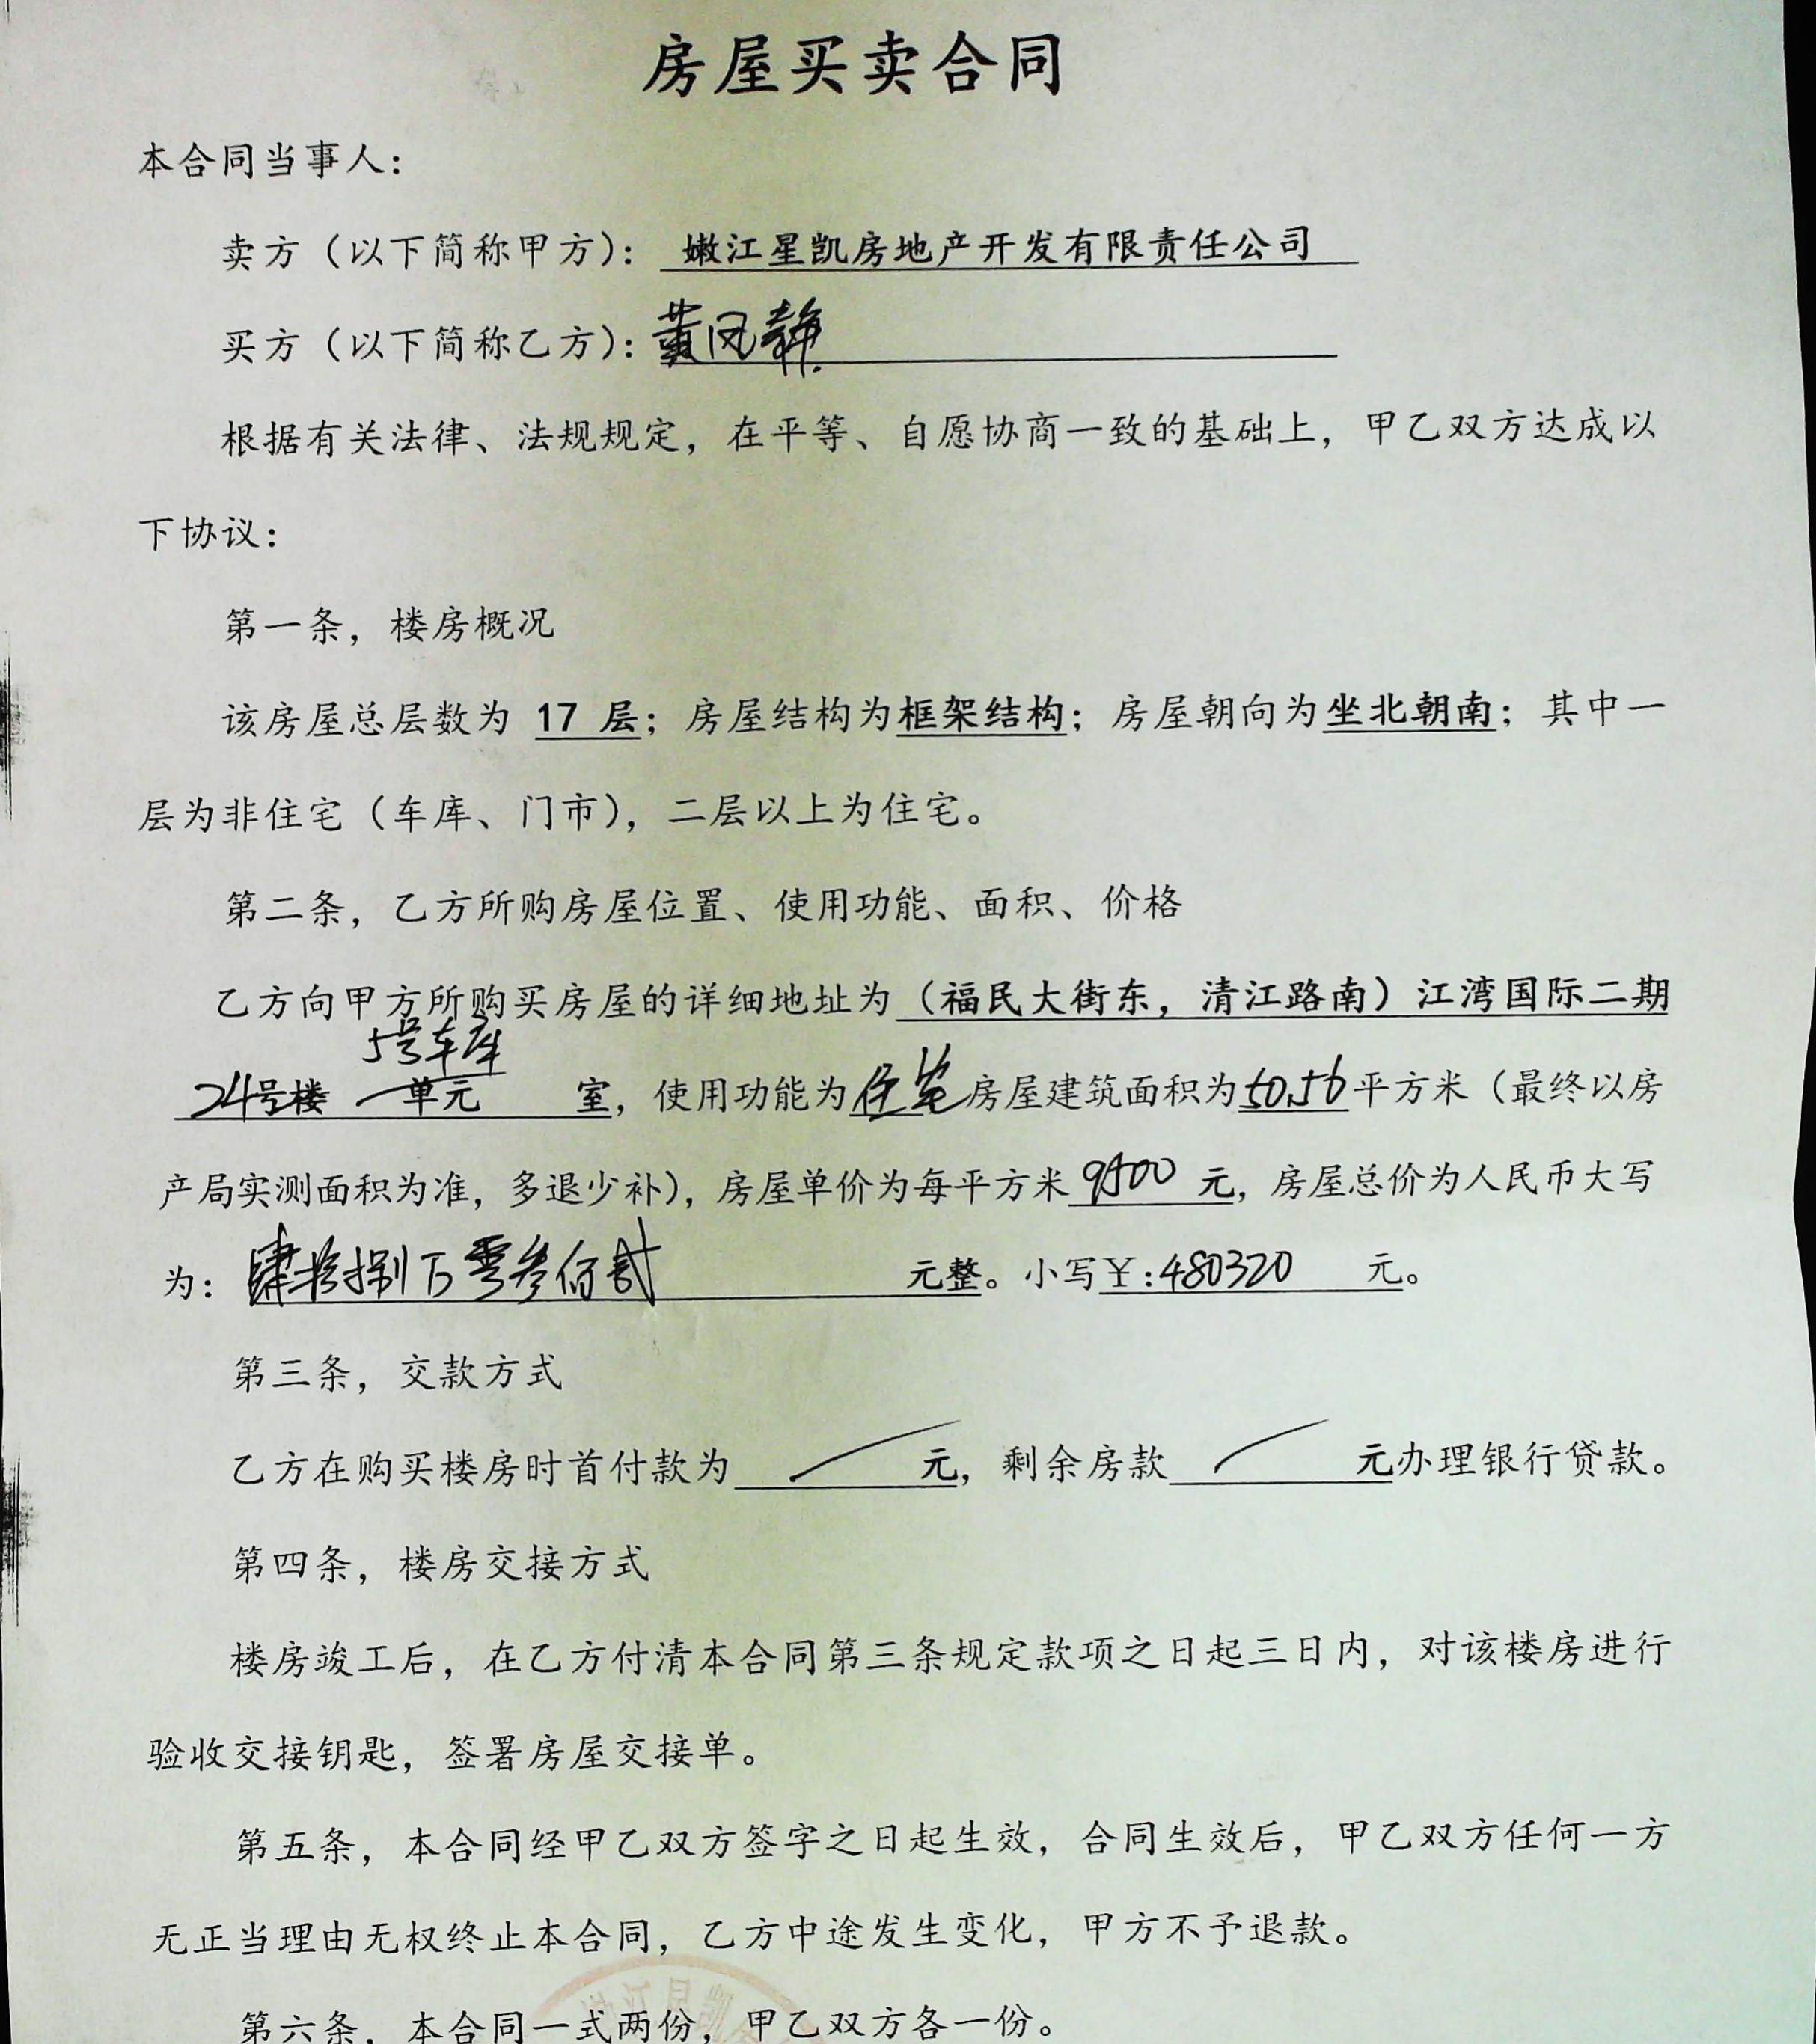 房屋买卖合同
本合同当事人：
卖方（以下简称甲方）：嫩江星凯房地产开发有限责任公司
买方（以下简称乙方）：黄凤静
根据有关法律、法规规定，在平等、自愿协商一致的基础上，甲乙双方达成以
下协议：
第一条，楼房概况
该房屋总层数为 17 层；房屋结构为框架结构；房屋朝向为坐北朝南；其中一
层为非住宅（车库、门市），二层以上为住宅。
第二条，乙方所购房屋位置、使用功能、面积、价格
乙方向甲方所购买房屋的详细地址为（福民大街东，清江路南）江湾国际二期
5号车库
24号楼 单元 室，使用功能为住宅房屋建筑面积为50.56平方米（最终以房
产局实测面积为准，多退少补），房屋单价为每平方米9500 元，房屋总价为人民币大写
为：肆拾捌万零叁佰贰 元整。小写￥:480320 元。
第三条，交款方式
乙方在购买楼房时首付款为 元，剩余房款 元办理银行贷款。
第四条，楼房交接方式
楼房竣工后，在乙方付清本合同第三条规定款项之日起三日内，对该楼房进行
验收交接钥匙，签署房屋交接单。
第五条，本合同经甲乙双方签字之日起生效，合同生效后，甲乙双方任何一方
无正当理由无权终止本合同，乙方中途发生变化，甲方不予退款。
第六条，本合同一式两份，甲乙双方各一份。